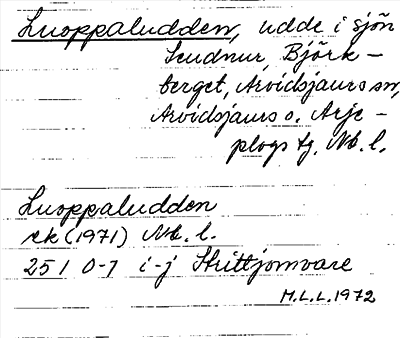 Luoppaludden, udde i sjön
Seudnur, Björk-
berget, Arvidsjaurs sn,
Arvidsjaurs o. Arje-
plogs tg. Nb. l.
Luoppaludden
rk (1971) Nb. l.
25 I 0-1 i-j Skittjomvare
M.L.L. 1972